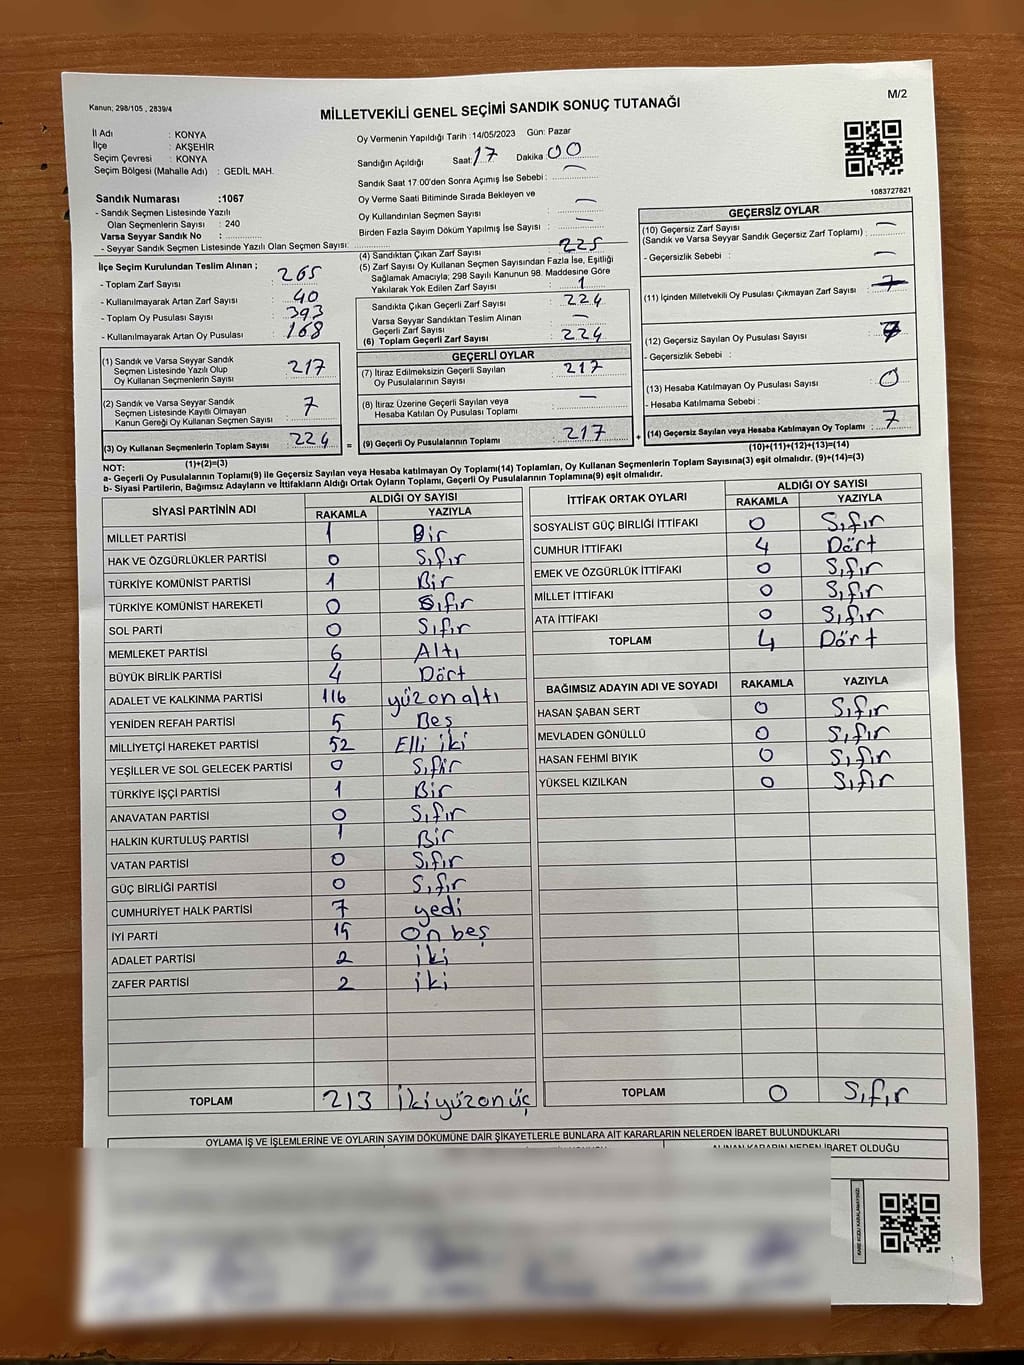 Kanun; 298/105 , 2839/4
M/2
MİLLETVEKİLİ GENEL SEÇİMİ SANDIK SONUÇ TUTANAĞI
İl Adı : KONYA
İlçe : AKŞEHİR
Seçim Çevresi : KONYA
Seçim Bölgesi (Mahalle Adı) : GEDİL MAH.
Oy Vermenin Yapıldığı Tarih :14/05/2023 Gün: Pazar
Sandığın Açıldığı Saat: 17 Dakika: 00
Sandık Saat 17:00'den Sonra Açımış İse Sebebi : —
Oy Verme Saati Bitiminde Sırada Bekleyen ve
Oy Kullandırılan Seçmen Sayısı : —
Birden Fazla Sayım Döküm Yapılmış İse Sayısı : —
1083727821
Sandık Numarası :1067
- Sandık Seçmen Listesinde Yazılı
Olan Seçmenlerin Sayısı : 240
Varsa Seyyar Sandık No :
- Seyyar Sandık Seçmen Listesinde Yazılı Olan Seçmen Sayısı:
İlçe Seçim Kurulundan Teslim Alınan ;
- Toplam Zarf Sayısı : 265
- Kullanılmayarak Artan Zarf Sayısı : 40
- Toplam Oy Pusulası Sayısı : 393
- Kullanılmayarak Artan Oy Pusulası : 168
(1) Sandık ve Varsa Seyyar Sandık
Seçmen Listesinde Yazılı Olup
Oy Kullanan Seçmenlerin Sayısı : 217
(2) Sandık ve Varsa Seyyar Sandık
Seçmen Listesinde Kayıtlı Olmayan
Kanun Gereği Oy Kullanan Seçmen Sayısı : 7
(3) Oy Kullanan Seçmenlerin Toplam Sayısı : 224
(1)+(2)=(3)
(4) Sandıktan Çıkan Zarf Sayısı : 225
(5) Zarf Sayısı Oy Kullanan Seçmen Sayısından Fazla İse, Eşitliği
Sağlamak Amacıyla; 298 Sayılı Kanunun 98. Maddesine Göre
Yakılarak Yok Edilen Zarf Sayısı : 1
Sandıkta Çıkan Geçerli Zarf Sayısı : 224
Varsa Seyyar Sandıktan Teslim Alınan
Geçerli Zarf Sayısı : —
(6) Toplam Geçerli Zarf Sayısı : 224
GEÇERLİ OYLAR
(7) İtiraz Edilmeksizin Geçerli Sayılan
Oy Pusulalarının Sayısı : 217
(8) İtiraz Üzerine Geçerli Sayılan veya
Hesaba Katılan Oy Pusulası Toplamı : —
= (9) Geçerli Oy Pusulalarının Toplamı : 217
GEÇERSİZ OYLAR
(10) Geçersiz Zarf Sayısı
(Sandık ve Varsa Seyyar Sandık Geçersiz Zarf Toplamı) : —
- Geçersizlik Sebebi : —
(11) İçinden Milletvekili Oy Pusulası Çıkmayan Zarf Sayısı :
(12) Geçersiz Sayılan Oy Pusulası Sayısı : 7
- Geçersizlik Sebebi :
(13) Hesaba Katılmayan Oy Pusulası Sayısı : 0
- Hesaba Katılmama Sebebi :
+ (14) Geçersiz Sayılan veya Hesaba Katılmayan Oy Toplamı : 7
(10)+(11)+(12)+(13)=(14)
NOT:
a- Geçerli Oy Pusulalarının Toplamı(9) ile Geçersiz Sayılan veya Hesaba katılmayan Oy Toplamı(14) Toplamları, Oy Kullanan Seçmenlerin Toplam Sayısına(3) eşit olmalıdır. (9)+(14)=(3)
b- Siyasi Partilerin, Bağımsız Adayların ve İttifakların Aldığı Ortak Oyların Toplamı, Geçerli Oy Pusulalarının Toplamına(9) eşit olmalıdır.
SİYASİ PARTİNİN ADI ALDIĞI OY SAYISI
RAKAMLA YAZIYLA
MİLLET PARTİSİ 1 Bir
HAK VE ÖZGÜRLÜKLER PARTİSİ 0 Sıfır
TÜRKİYE KOMÜNİST PARTİSİ 1 Bir
TÜRKİYE KOMÜNİST HAREKETİ 0 Sıfır
SOL PARTİ 0 Sıfır
MEMLEKET PARTİSİ 6 Altı
BÜYÜK BİRLİK PARTİSİ 4 Dört
ADALET VE KALKINMA PARTİSİ 116 yüzonaltı
YENİDEN REFAH PARTİSİ 5 Beş
MİLLİYETÇİ HAREKET PARTİSİ 52 Elli iki
YEŞİLLER VE SOL GELECEK PARTİSİ 0 Sıfır
TÜRKİYE İŞÇİ PARTİSİ 1 Bir
ANAVATAN PARTİSİ 0 Sıfır
HALKIN KURTULUŞ PARTİSİ 1 Bir
VATAN PARTİSİ 0 Sıfır
GÜÇ BİRLİĞİ PARTİSİ 0 Sıfır
CUMHURİYET HALK PARTİSİ 7 yedi
İYİ PARTİ 15 on beş
ADALET PARTİSİ 2 iki
ZAFER PARTİSİ 2 iki
TOPLAM 213 ikiyüzonüç
İTTİFAK ORTAK OYLARI ALDIĞI OY SAYISI
RAKAMLA YAZIYLA
SOSYALİST GÜÇ BİRLİĞİ İTTİFAKI 0 Sıfır
CUMHUR İTTİFAKI 4 Dört
EMEK VE ÖZGÜRLÜK İTTİFAKI 0 Sıfır
MİLLET İTTİFAKI 0 Sıfır
ATA İTTİFAKI 0 Sıfır
TOPLAM 4 Dört
BAĞIMSIZ ADAYIN ADI VE SOYADI RAKAMLA YAZIYLA
HASAN ŞABAN SERT 0 Sıfır
MEVLADEN GÖNÜLLÜ 0 Sıfır
HASAN FEHMİ BIYIK 0 Sıfır
YÜKSEL KIZILKAN 0 Sıfır
TOPLAM 0 Sıfır
OYLAMA İŞ VE İŞLEMLERİNE VE OYLARIN SAYIM DÖKÜMÜNE DAİR ŞİKAYETLERLE BUNLARA AİT KARARLARIN NELERDEN İBARET BULUNDUKLARI
ALINAN KARARIN NEDEN İBARET OLDUĞU
KARE KODU KARALAMAYINIZ!